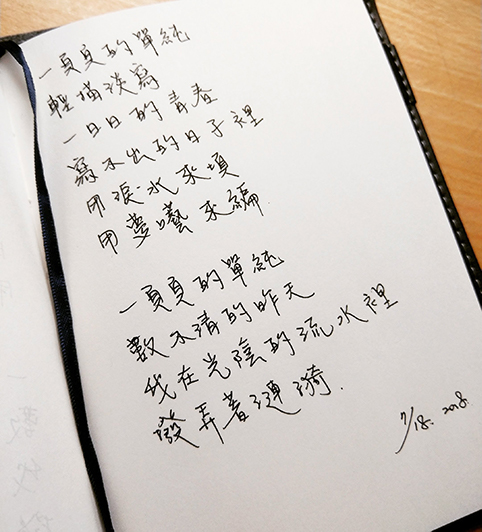 一頁頁的單純
輕描淡寫
一日日的青春
寫不出的日子裡
用淚水來填
用夢囈來編
一頁頁的單純
數不清的昨天
我在光陰的流水裡
撥弄著漣漪.
7/18. 2018.